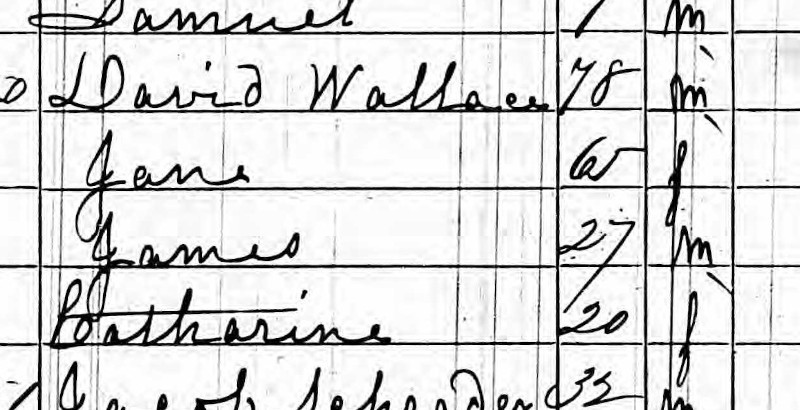 Samuel 1 m
David Wallace 78 m
Jane 65 f
James 27 m
Catharine 20 f
Jacob 35 m